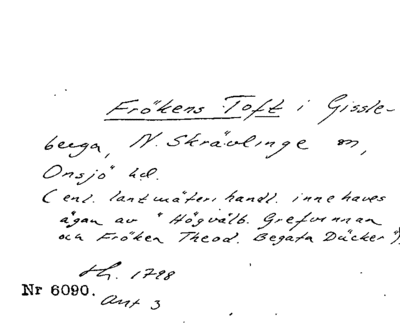 Frökens Toft i Gissle-
berga, N. Skrävlinge sn,
Onsjö hd.
(enl. lantmäteri handl. innehaves
ägan av "Högvälb. Grefvinnan
och Fröken Theod. Begata Dücker")
1798
Nr 6090.
Ant 3